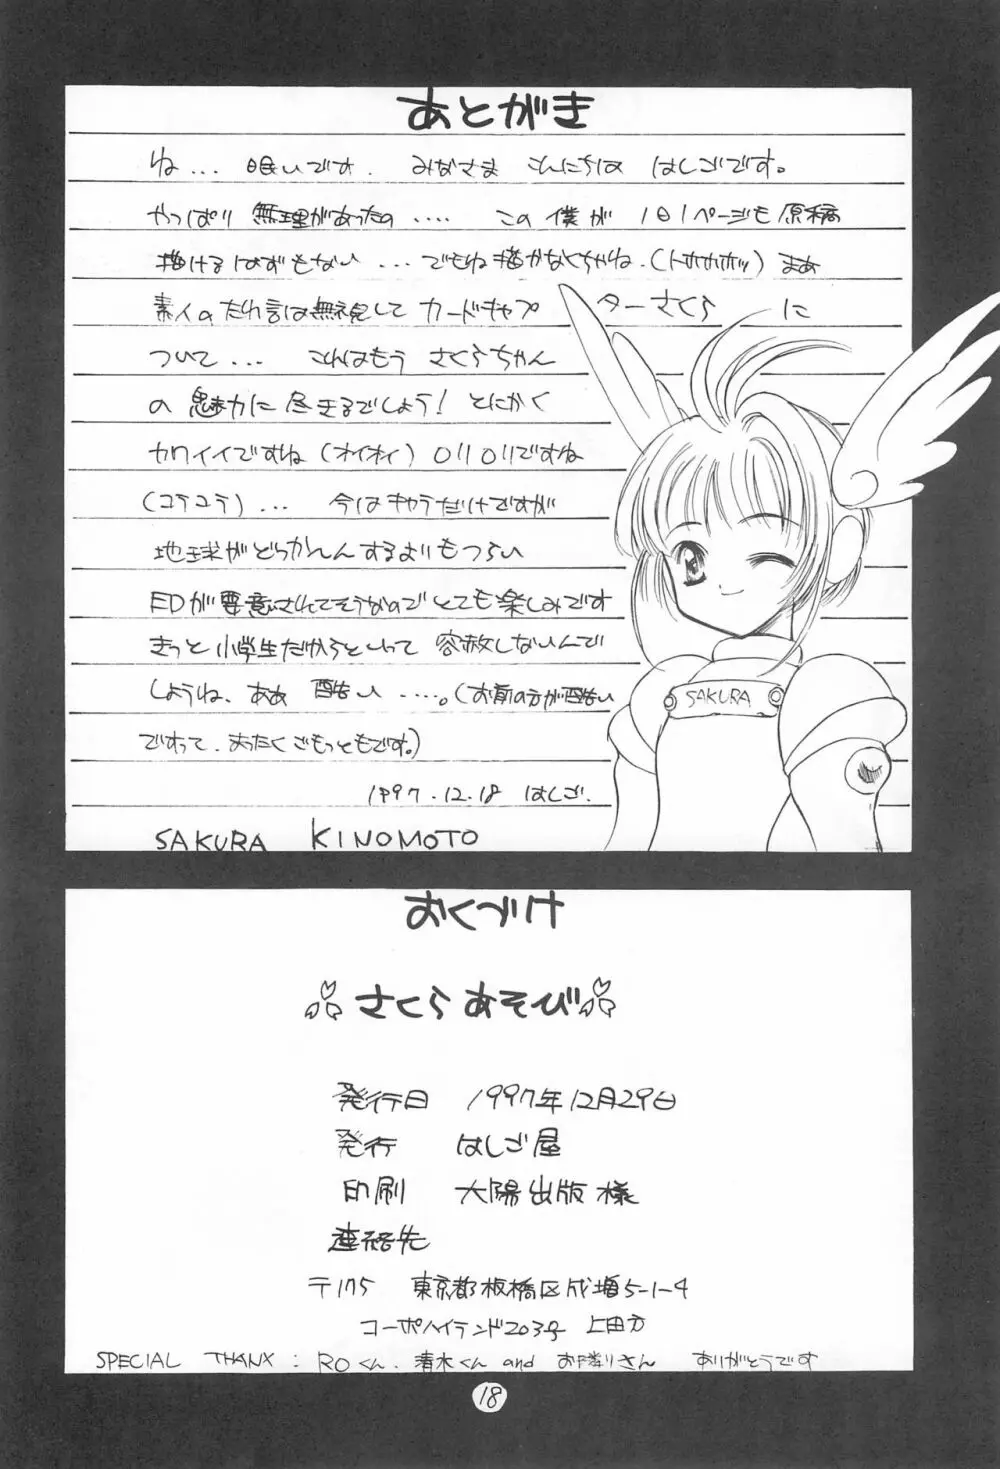 あとがき
ね... 眠いです. みなさま こんにちは はしごです。
やっぱり 無理があったの .... この僕が 1日1ページも 原稿
描けるはずもない ... でもね 描かなくちゃね. (トホホホッ) まあ
素人のたれ言は無視して カードキャプターさくら に
ついて ... これはもう さくらちゃん
の 魅力に 尽きるでしょう! とにかく
カワイイですね (オイオイ) ロリロリですね
(コラコラ) ... 今はキャラだけですが
地球がどっかんんするよりもつらい
EDが要意されてそうなのでとても楽しみです
きっと小学生だからといって 容赦しないんで
しょうね、ああ 酷い .....。(お前の方が酷い
ですって、まったくごもっともです。)
1997.12.18 はしご.
SAKURA KINOMOTO
SAKURA
おくづけ
さくらあそび
発行日 1997年12月29日
発行 はしご屋
印刷 大陽出版 様
連絡先
〒175 東京都板橋区成増5-1-4
コーポハイランド203号 上田方
SPECIAL THANX : ROくん. 清水くん and お隣りさん ありがとうです
18